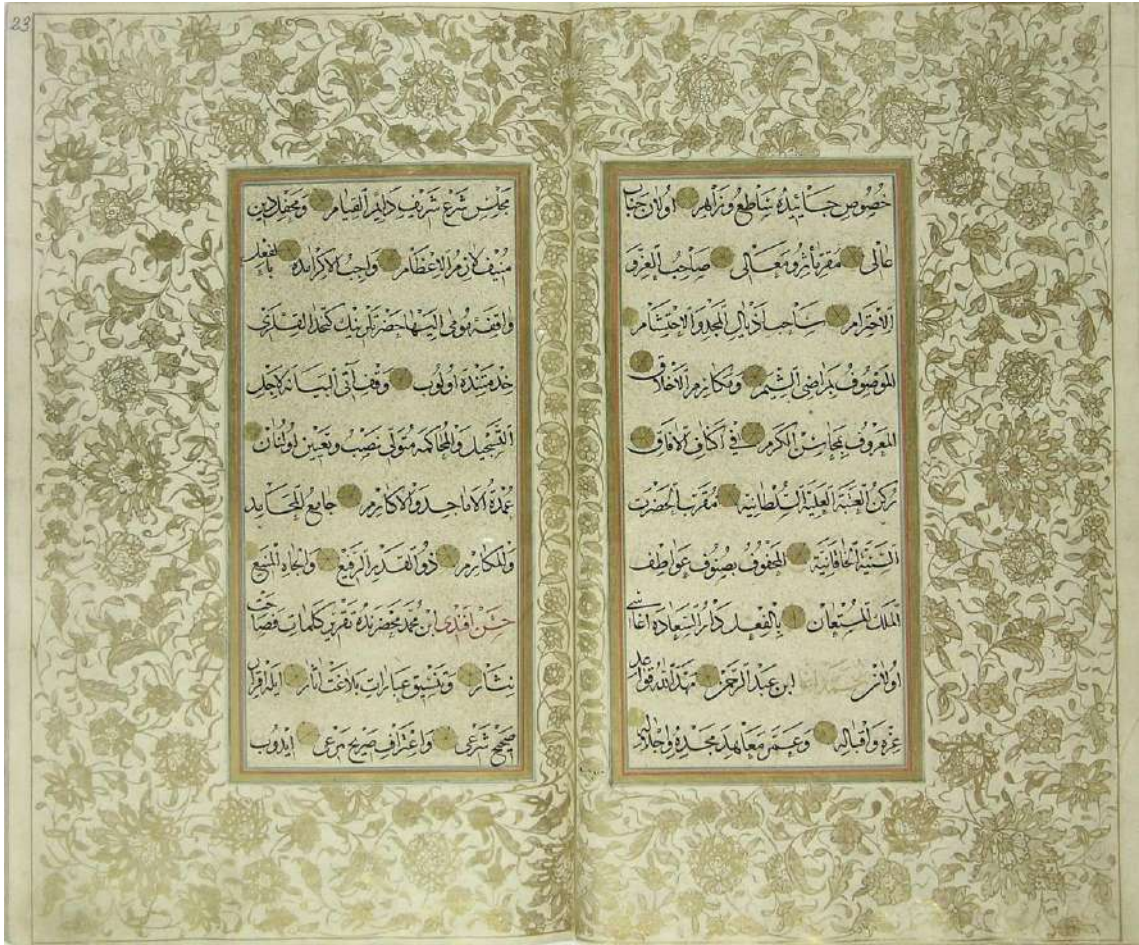 خصوص جانبده ساطع وزاهر اولان جناب
عالی مقر مآثر و معالی صاحب العز و
الاحترام ساحب اذیال المجد والاحتشام
الموصوف بمراضی الشیم ومکارم الاخلاق
المعروف بمحاسن الکرم فی اکناف الافاق
رکن العتبة العلیة السلطانیه مقرب الحضرت
السنیة الخاقانیة المحفوف بصنوف عواطف
الملک المستعان بالفعل دار السعاده اغاسی
اولان ابن عبد الرحمن مهد الله قواعد
عزه واقباله وعمر معاهد مجده واجلاله
23
مجلس شرع شریف دایم القیام ومحفل دین
منیف لازم الاعظام واجب الاکرامده بالفعل
واقفه مومی الیها حضرتلرینک کتخدا القدری
خدمتنده اولوب وقف آتی البیانه لاجل
التسجیل والمحاکمه متولی نصب وتعیین اولنان
عمدة الاماجد والاکارم جامع المحامد
والمکارم ذو القدر الرفیع والجاه المنیع
حسن افندی ابن محمد محضرنده تقریر کلمات فصاحت
نثار وتنسیق عبارات بلاغت اثار ایله اقرار
صحیح شرعی واعتراف صریح مرعی ایدوب